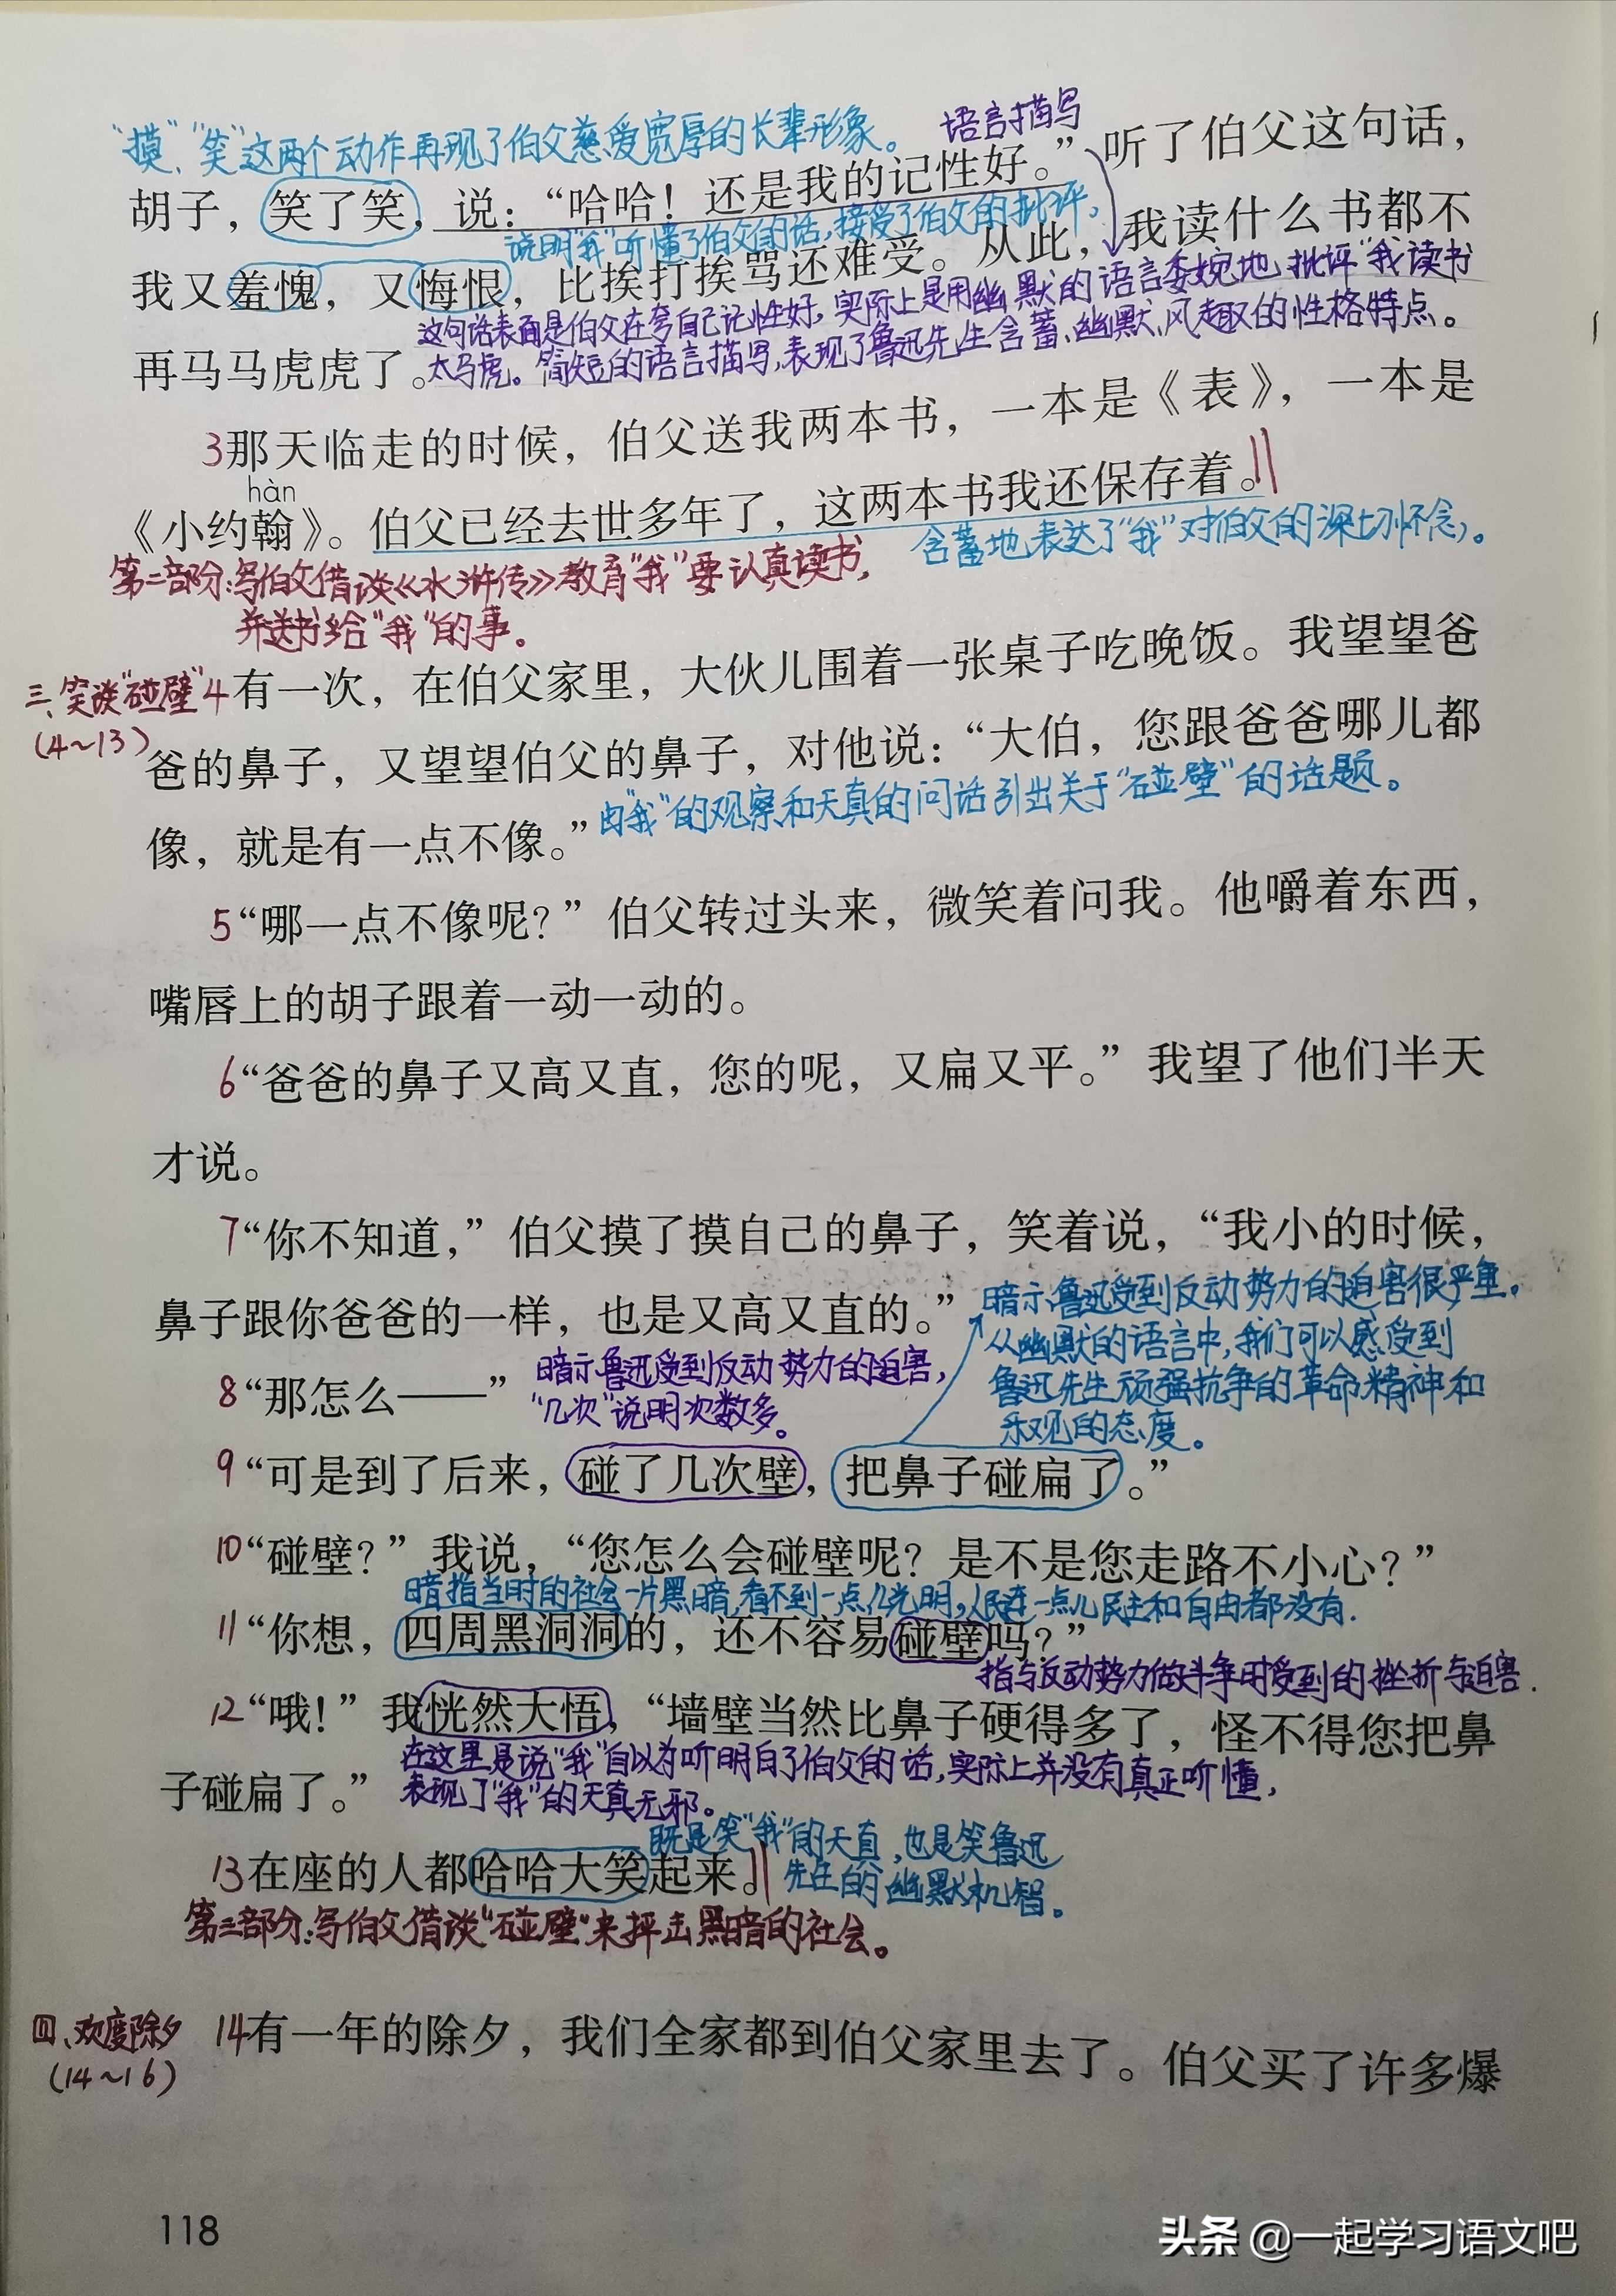 “摸”、“笑”这两个动作再现了伯父慈爱宽厚的长辈形象。
语言描写
胡子，笑了笑，说：“哈哈！还是我的记性好。”听了伯父这句话，
说明“我”听懂了伯父的话，接受了伯父的批评，
我又羞愧，又悔恨，比挨打挨骂还难受。从此，我读什么书都不
这句话表面是伯父在夸自己记性好，实际上是用幽默的语言委婉地批评“我读书
太马虎。简短的语言描写，表现了鲁迅先生含蓄、幽默、风趣的性格特点。
再马马虎虎了。
3那天临走的时候，伯父送我两本书，一本是《表》，一本是
hàn
《小约翰》。伯父已经去世多年了，这两本书我还保存着。
含蓄地表达了“我”对伯父的深切怀念。
第二部分：写伯父借谈《水浒传》教育“我”要认真读书，
并送书给“我”的事。
三、笑谈“碰壁”
(4~13)
4有一次，在伯父家里，大伙儿围着一张桌子吃晚饭。我望望爸
爸的鼻子，又望望伯父的鼻子，对他说：“大伯，您跟爸爸哪儿都
像，就是有一点不像。”
由“我”的观察和天真的问话引出关于“碰壁”的话题。
5“哪一点不像呢？”伯父转过头来，微笑着问我。他嚼着东西，
嘴唇上的胡子跟着一动一动的。
6“爸爸的鼻子又高又直，您的呢，又扁又平。”我望了他们半天
才说。
7“你不知道，”伯父摸了摸自己的鼻子，笑着说，“我小的时候，
鼻子跟你爸爸的一样，也是又高又直的。”
暗示鲁迅受到反动势力的迫害很严重。
从幽默的语言中，我们可以感受到
鲁迅先生顽强抗争的革命精神和
乐观的态度。
8“那怎么——”
暗示鲁迅受到反动势力的迫害，
“几次”说明次数多。
9“可是到了后来，碰了几次壁，把鼻子碰扁了。”
10“碰壁？”我说，“您怎么会碰壁呢？是不是您走路不小心？”
暗指当时的社会一片黑暗，看不到一点儿光明，人民连一点儿民主和自由都没有.
11“你想，四周黑洞洞的，还不容易碰壁吗？”
指与反动势力做斗争时受到的挫折与迫害.
12“哦！”我恍然大悟，“墙壁当然比鼻子硬得多了，怪不得您把鼻
在这里是说“我”自以为听明白了伯父的话，实际上并没有真正听懂，
子碰扁了。”
表现了“我”的天真无邪。
既是笑“我”的天真，也是笑鲁迅
先生的幽默机智。
13在座的人都哈哈大笑起来。
第三部分：写伯父借谈“碰壁”来抨击黑暗的社会。
四、欢度除夕
(14~16)
14有一年的除夕，我们全家都到伯父家里去了。伯父买了许多爆
118
头条 @一起学习语文吧